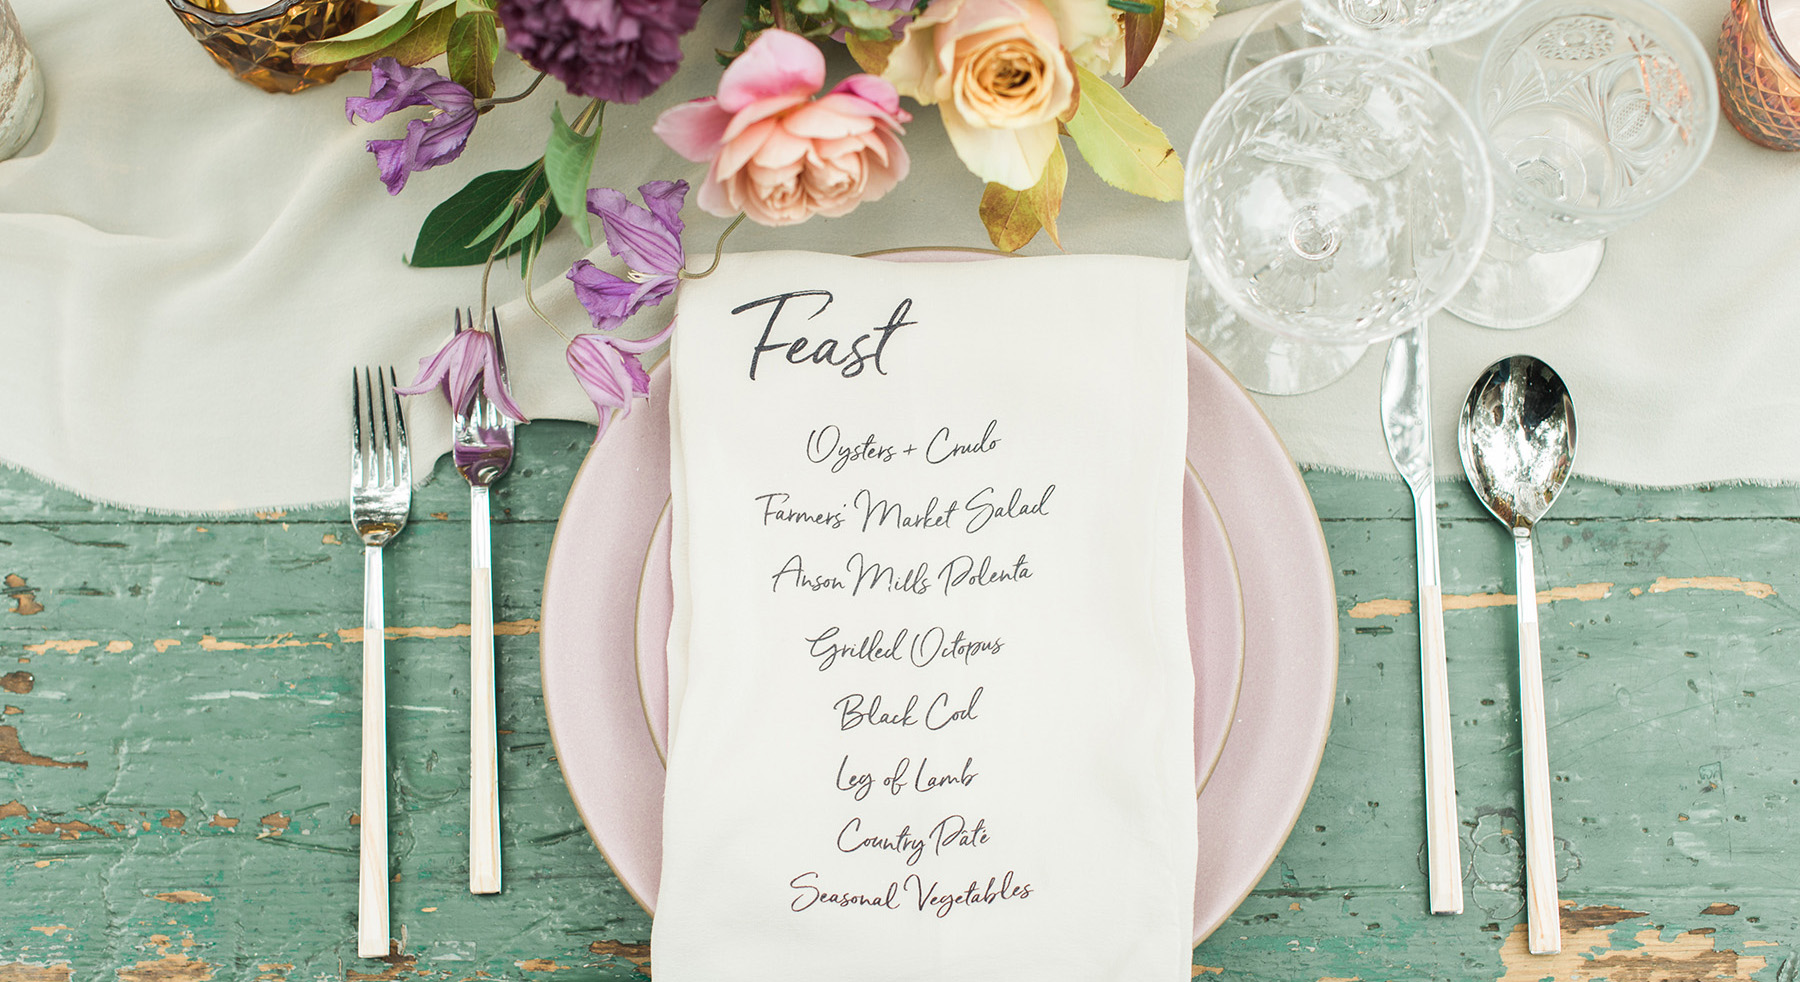 Feast
Oysters + Crudo
Farmers' Market Salad
Anson Mills Polenta
Grilled Octopus
Black Cod
Leg of Lamb
Country Pâté
Seasonal Vegetables